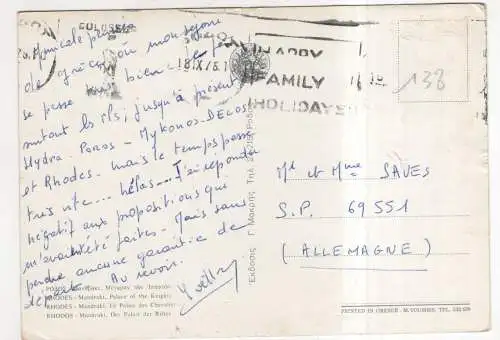 Amicale pensée
de Grèce où mon séjour
se passe très bien
surtout les îles, jusqu'à présent
Hydra. Poros - Mykonos - DELOS
et Rhodes - mais le temps passe
très vite... hélas... J'ai répondu
négatif aux propositions qui
m'avaient été faites. Mais sans
perdre aucune garantie de
départ. Au revoir.
18.IX.75
FAMILY
HOLIDAYS
138
Ml et Mme SAVES
S.P. 69551
(ALLEMAGNE)
Εκδοσις Γ. Μαρρής Τηλ
RHODES - Mandraki, Palace of the Knights
RHODES - Mandraki, Le Palais des Chevaliers
RHODOS - Mandraki, Der Palast der Ritter
PRINTED IN GREECE - M. TOUBIS